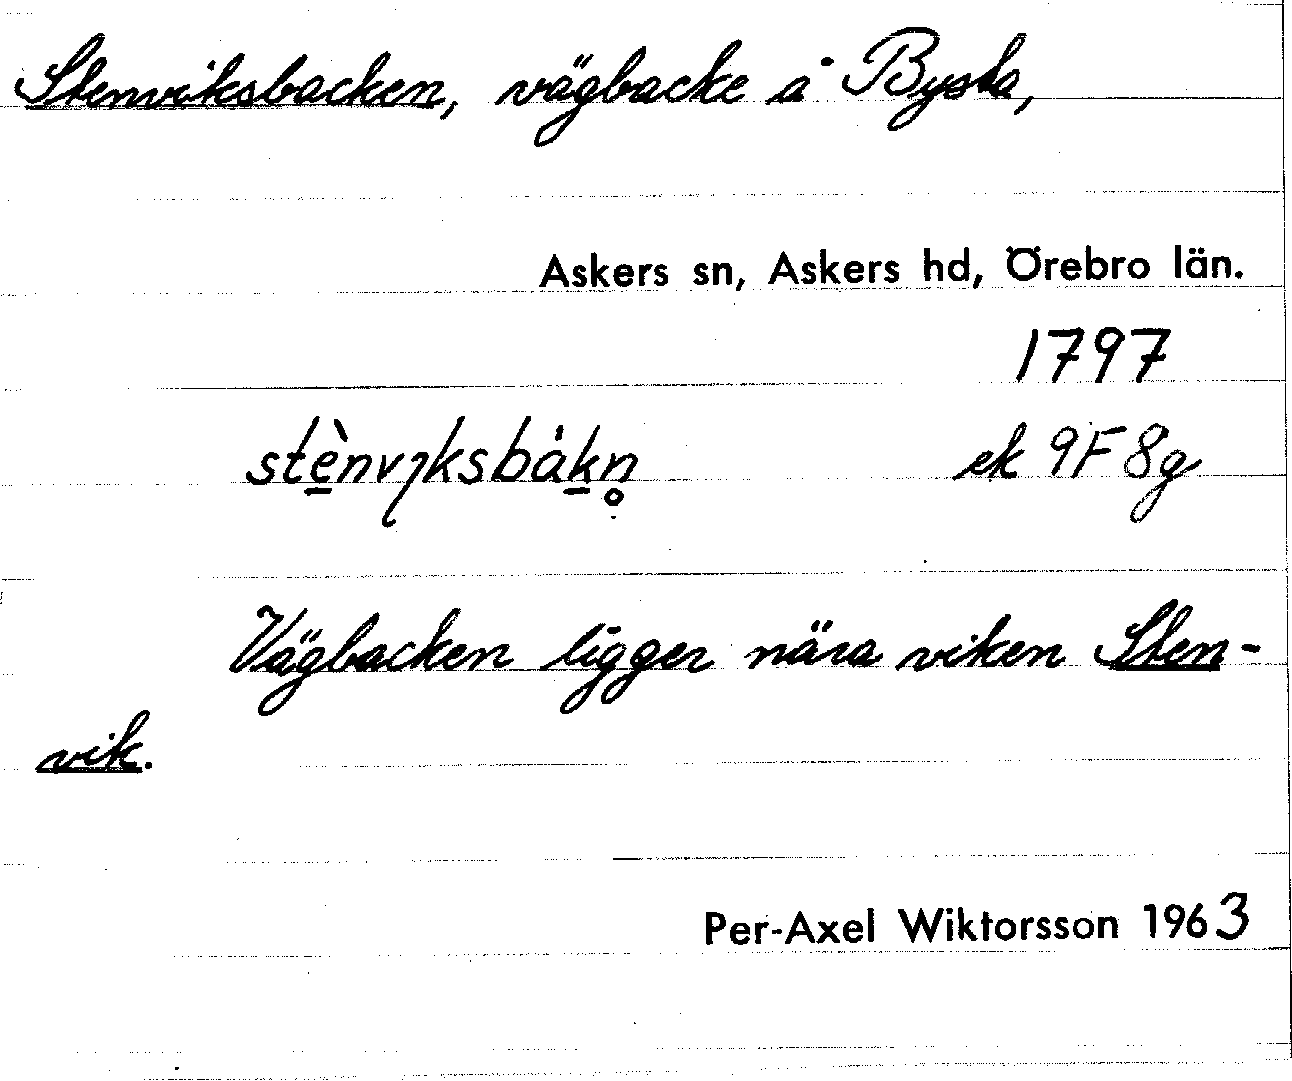 Stenviksbacken, vägbacke å Bysta,
Askers sn, Askers hd, Örebro län.
1797
stènvɿksbàkn̥
ek 9F8g
Vägbacken ligger nära viken Sten-
vik.
Per-Axel Wiktorsson 1963